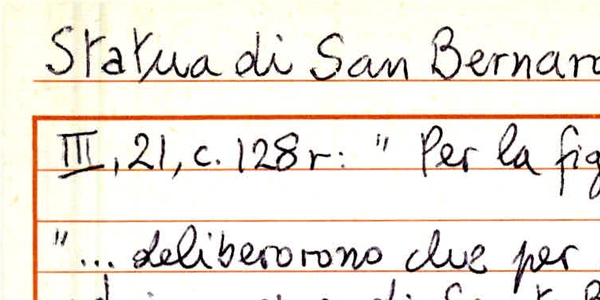 Statua di San Bernar
III, 21, c. 128r: " Per la fig
"... deliberorono che per